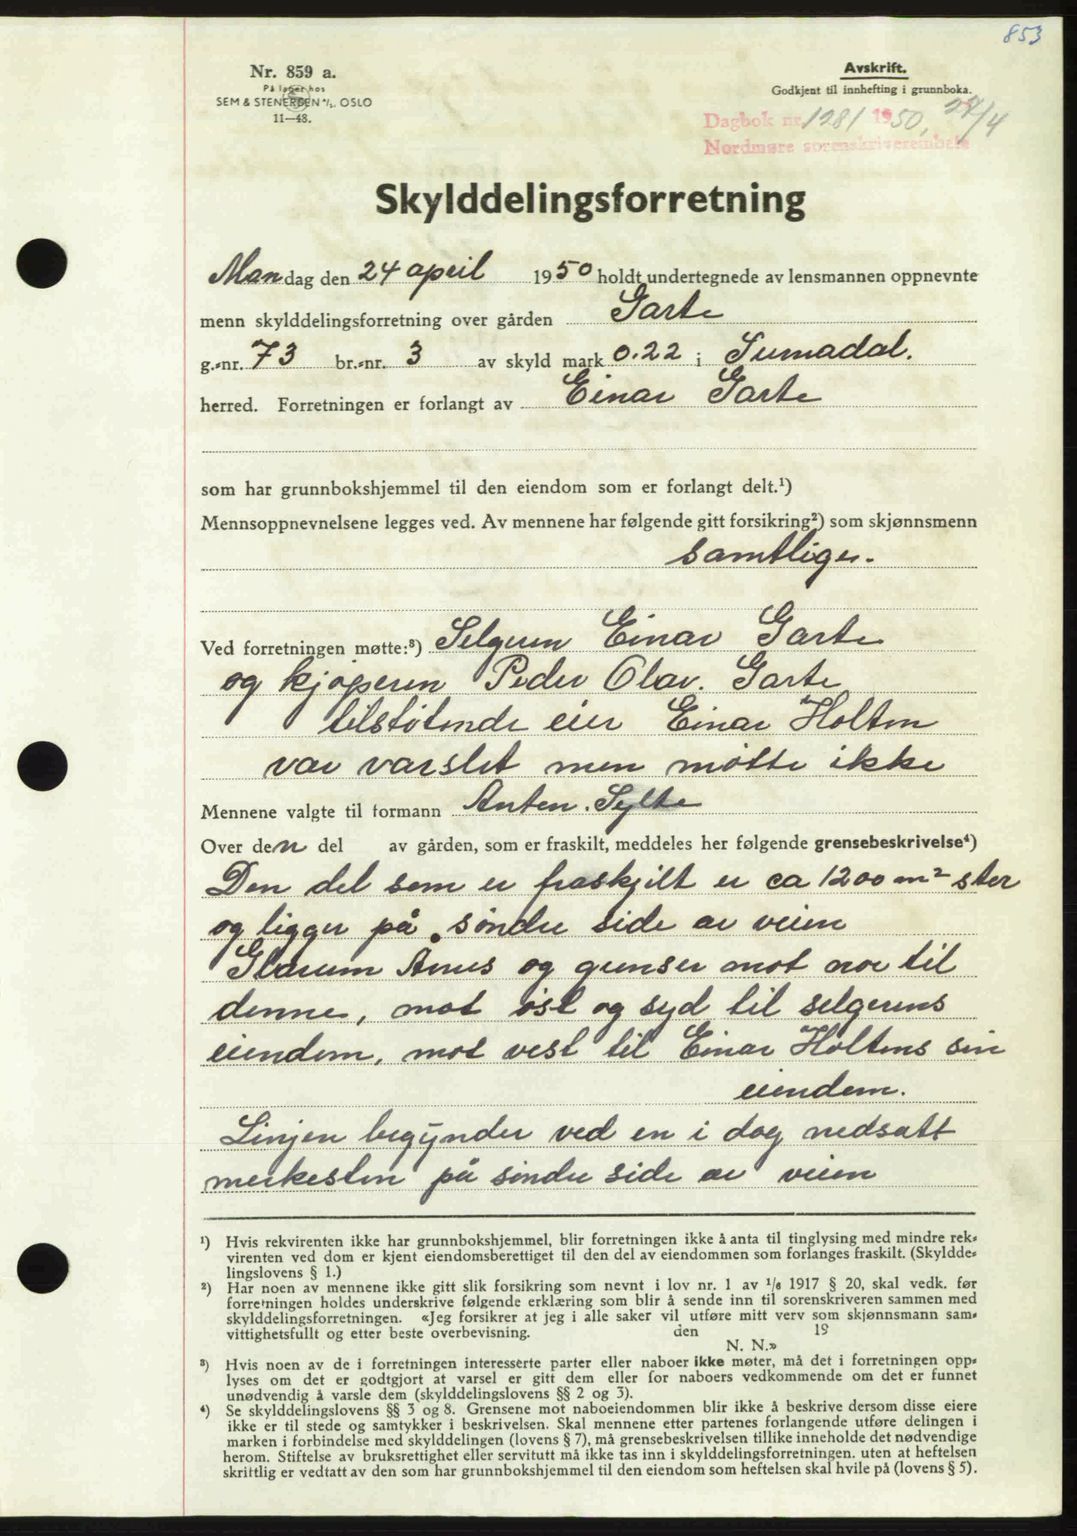 853
Nr. 859 a.
På lager hos
SEM & STENERSEN A/S, OSLO
11-48.
Avskrift.
Godkjent til innhefting i grunnboka.
Dagbok nr. 1281 1950, 24/4
Nordmøre sorenskriverembete
Skylddelingsforretning
Mandag den 24 april 1950 holdt undertegnede av lensmannen oppnevnte
menn skylddelingsforretning over gården Garte
g.-nr. 73 br.-nr. 3 av skyld mark 0.22 i Surnadal.
herred. Forretningen er forlangt av Einar Garte
som har grunnbokshjemmel til den eiendom som er forlangt delt.¹)
Mennsoppnevnelsene legges ved. Av mennene har følgende gitt forsikring²) som skjønnsmenn
samtlige.
Ved forretningen møtte:³) Selgeren Einar Garte
og kjøperen Peder Olav. Garte
tilstøtende eier Einar Holten
var varslet men møtte ikke
Mennene valgte til formann Anten. Sylte
Over den del av gården, som er fraskilt, meddeles her følgende grensebeskrivelse⁴)
Den del som er fraskjilt er ca 1200 m² stor
og ligger på søndre side av veien
Glærum Arnes og grenser mot nor til
denne, mot øst og syd til selgerens
eiendom, mot vest til Einar Holtens sin
eiendom.
Linjen begynder ved en i dag nedsatt
merkesten på søndre side av veien
¹) Hvis rekvirenten ikke har grunnbokshjemmel, blir forretningen ikke å anta til tinglysing med mindre rek-
virenten ved dom er kjent eiendomsberettiget til den del av eiendommen som forlanges fraskilt. (Skyldde-
lingslovens § 1.)
²) Har noen av mennene ikke gitt slik forsikring som nevnt i lov nr. 1 av 1/6 1917 § 20, skal vedk. før
forretningen holdes underskrive følgende erklæring som blir å sende inn til sorenskriveren sammen med
skylddelingsforretningen. «Jeg forsikrer at jeg i alle saker vil utføre mitt verv som skjønnsmann sam-
vittighetsfullt og etter beste overbevisning. den 19
N. N.»
³) Hvis noen av de i forretningen interesserte parter eller naboer ikke møter, må det i forretningen opp-
lyses om det er godtgjort at varsel er gitt dem eller for naboers vedkommende om det er funnet
unødvendig å varsle dem (skylddelingslovens §§ 2 og 3).
⁴) Se skylddelingslovens §§ 3 og 8. Grensene mot naboeiendommen blir ikke å beskrive dersom disse eiere
ikke er til stede og samtykker i beskrivelsen. Skal mennene etter partenes forlangende utføre delingen i
marken i forbindelse med skylddelingen (lovens § 7), må grensebeskrivelsen tillike inneholde det nødvendige
herom. Stiftelse av bruksrettighet eller servitutt må ikke tas inn i skylddelingsforretningen. uten at heftelsen
skrittlig er vedtatt av den som har grunnbokshjemmel til den eiendom som heftelsen skal hvile på (lovens § 5).